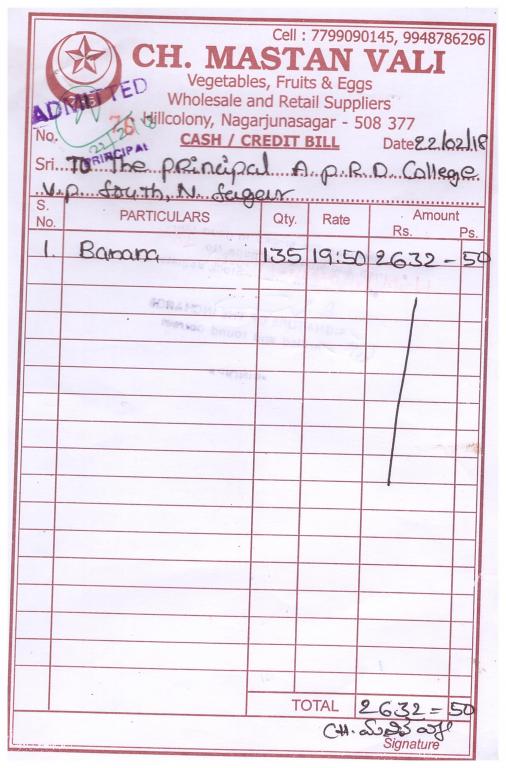 Cell : 7799090145, 9948786296
CH. MASTAN VALI
Vegetables, Fruits & Eggs
Wholesale and Retail Suppliers
Hillcolony, Nagarjunasagar - 508 377
ADMITTED
PRINCIPAL
No.
CASH / CREDIT BILL
Date 22/02/18
Sri. To The principal A.p.R.D. College
V.p. South, N. Sagar
S. No. PARTICULARS Qty. Rate Amount
Rs. Ps.
1. Banana 135 19:50 2632 - 50
TOTAL 2632 = 50
CH.
Signature